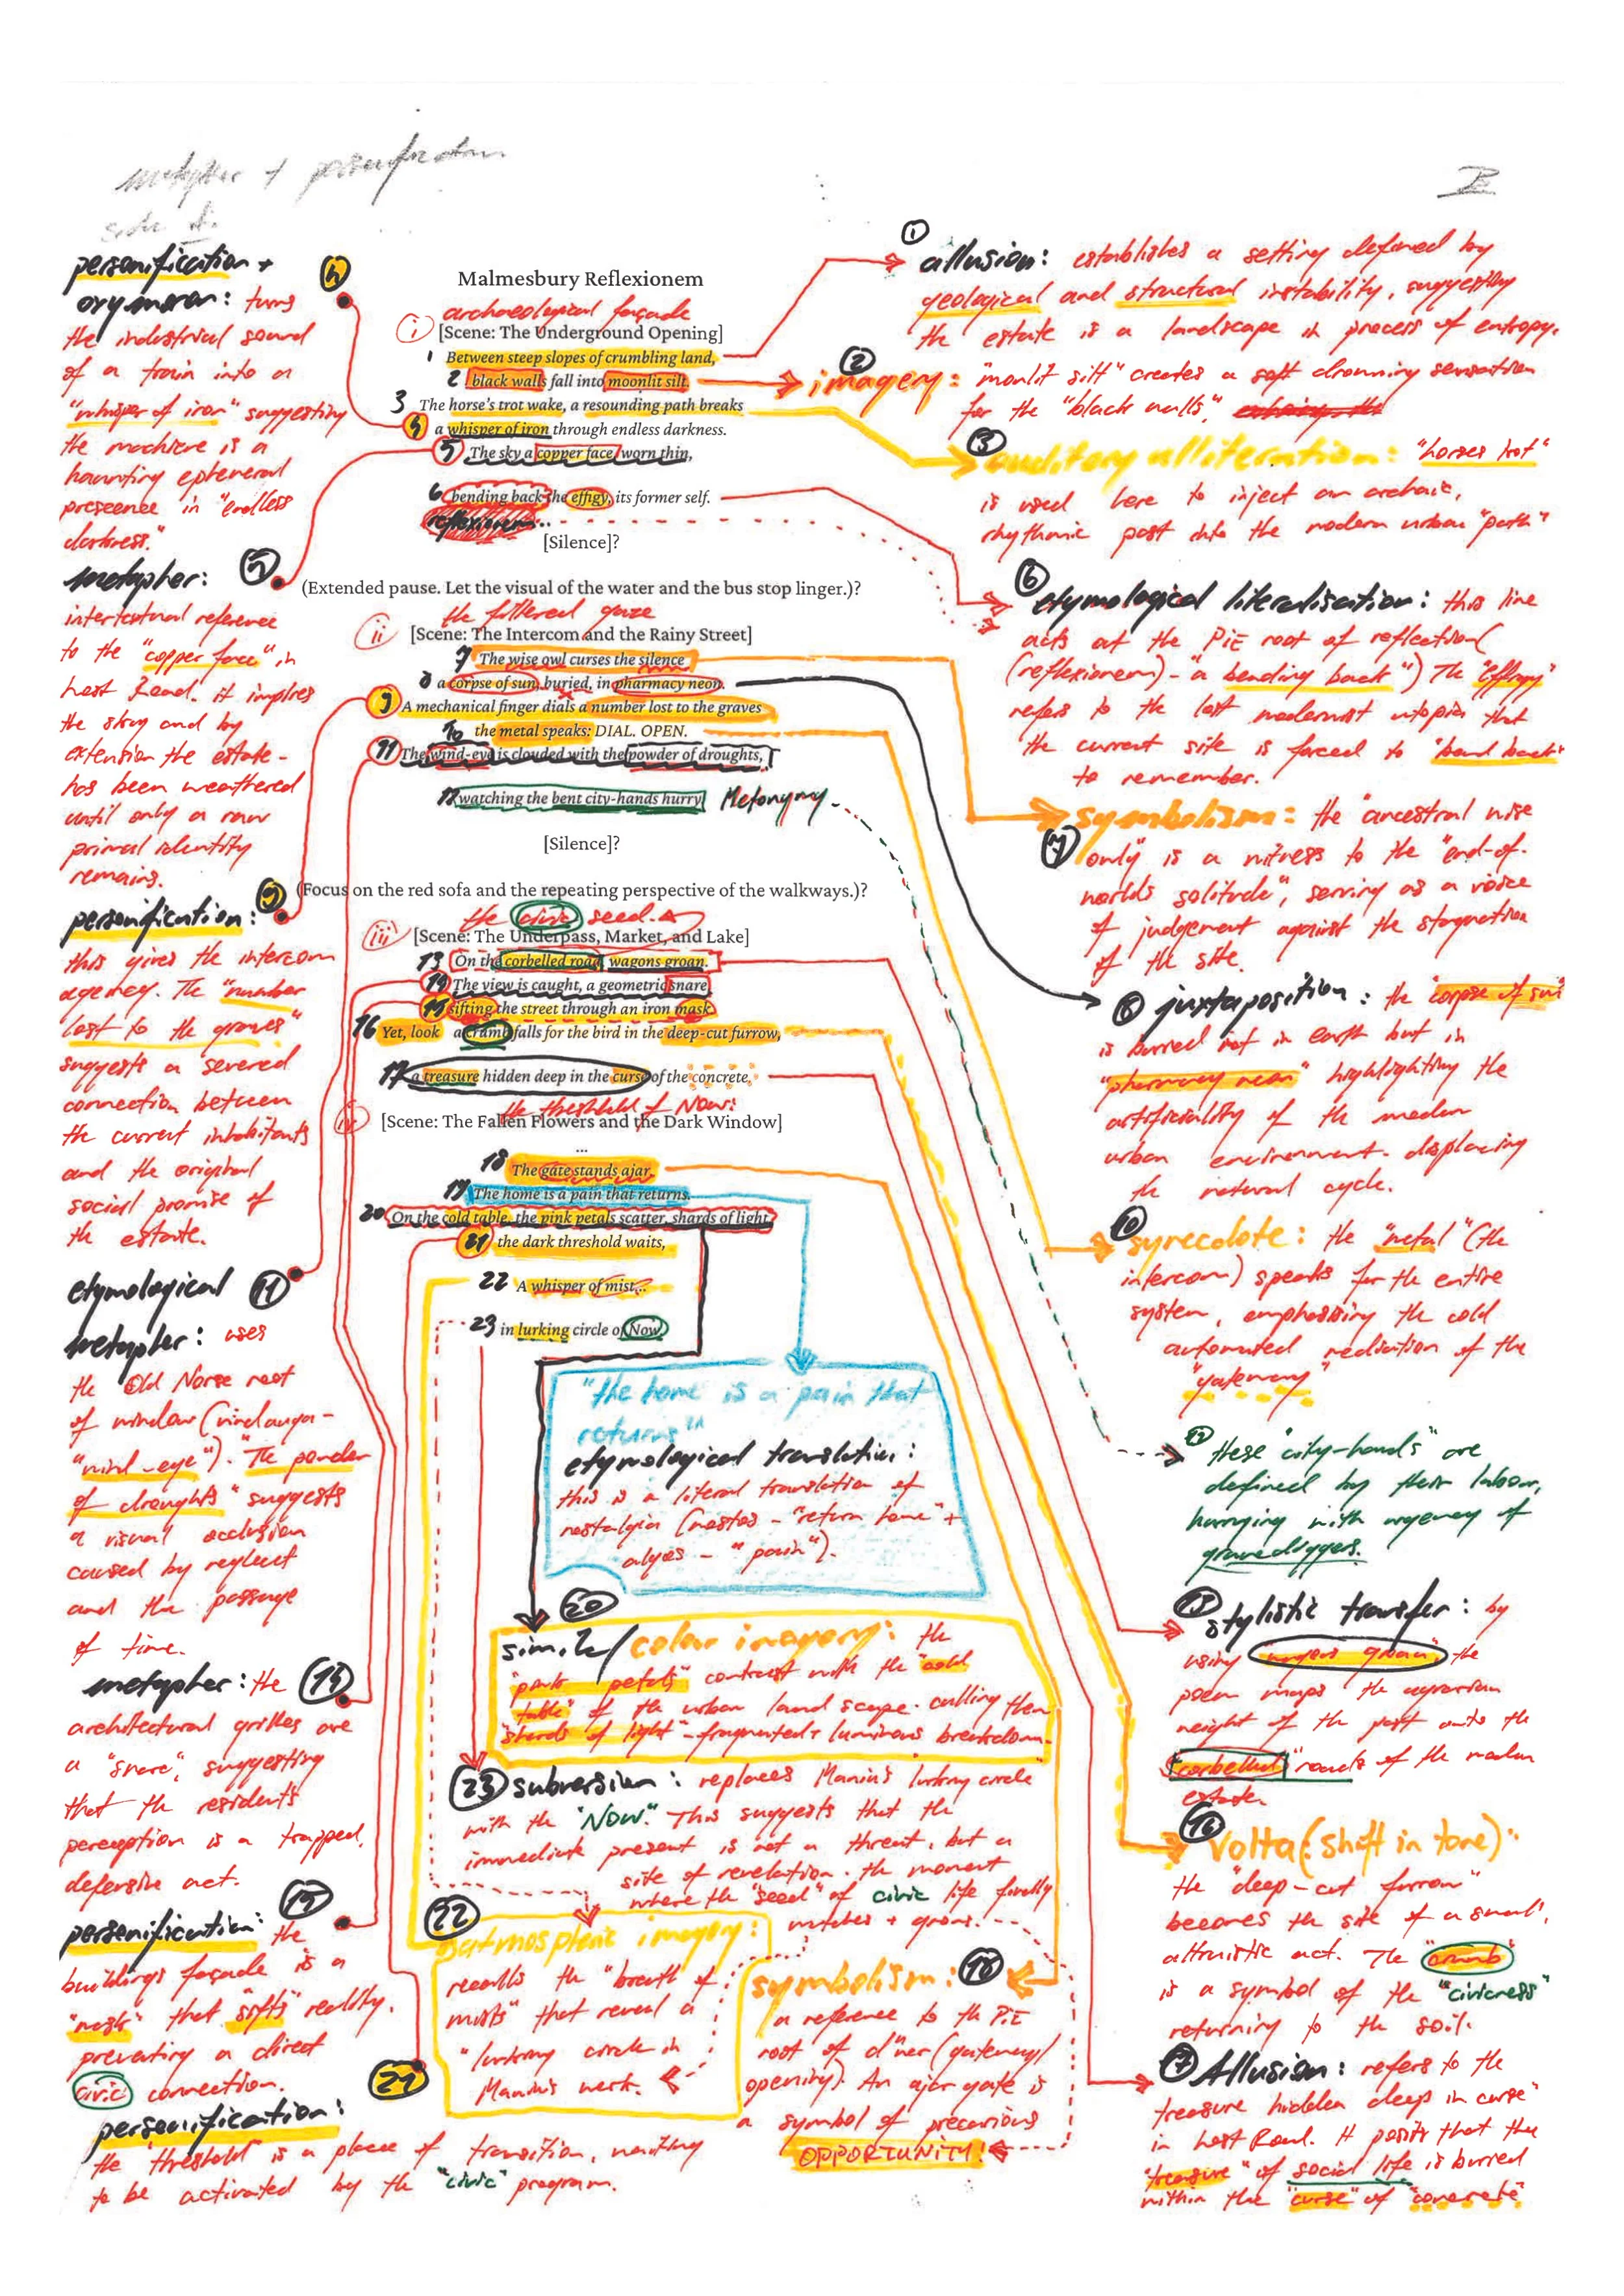 metapher + personification
side A.
II
Malmesbury Reflexionem
archaeological façade
i [Scene: The Underground Opening]
1 Between steep slopes of crumbling land,
2 black walls fall into moonlit silt.
3 The horse's trot wake, a resounding path breaks
4 a whisper of iron through endless darkness.
5 The sky a copper face worn thin,
6 bending back the effigy, its former self.
reflexionem...
[Silence]?
(Extended pause. Let the visual of the water and the bus stop linger.)?
the filtered gaze
ii [Scene: The Intercom and the Rainy Street]
7 The wise owl curses the silence
8 a corpse of sun, buried, in pharmacy neon.
9 A mechanical finger dials a number lost to the graves
10 the metal speaks: DIAL. OPEN.
11 The wind-eye is clouded with the powder of droughts,
12 watching the bent city-hands hurry Metonymy.
[Silence]?
(Focus on the red sofa and the repeating perspective of the walkways.)?
the civic seed.
iii [Scene: The Underpass, Market, and Lake]
13 On the corbelled road, wagons groan.
14 The view is caught, a geometric snare
15 sifting the street through an iron mask.
16 Yet, look a crumb falls for the bird in the deep-cut furrow,
17 a treasure hidden deep in the curse of the concrete,
the threshold of Now:
iv [Scene: The Fallen Flowers and the Dark Window]
...
18 The gate stands ajar,
19 The home is a pain that returns.
20 On the cold table, the pink petals scatter, shards of light,
21 the dark threshold waits,
22 A whisper of mist...
23 in lurking circle of Now
personification +
oxymoron: turns 4
the industrial sound
of a train into a
"whisper of iron" suggesting
the machine is a
haunting ephemeral
presence in "endless
darkness."
metapher: 5
intertextual reference
to the "copper face" in
host Read. it implies
the sky and by
extension the estate -
has been weathered
until only a raw
primal identity
remains.
personification: 9
this gives the intercom
agency. The "number
lost to the graves"
suggests a severed
connection between
the current inhabitants
and the original
social promise of
the estate.
etymological 11
metapher: uses
the Old Norse root
of window (vindauga -
"wind-eye"). "The powder
of droughts" suggests
a visual occlusion
caused by neglect
and the passage
of time.
metapher: the 14
architectural grilles are
a "snare", suggesting
that the residents
perception is a trapped,
defensive act.
15
personification: the
buildings façade is a
"mask" that "sifts" reality.
preventing a direct
civic connection.
21
personification:
the threshold is a place of transition, waiting
to be activated by the "civic" program.
1
allusion: establishes a setting defined by
geological and structural instability, suggesting
the estate is a landscape in process of entropy.
2
imagery: "moonlit silt" creates a soft drowning sensation
for the "black walls,"
3
auditory alliteration: "horses trot"
is used here to inject an archaic,
rhythmic past into the modern urban "path"
6
etymological literalisation: this line
acts at the PiE root of reflection(
(reflexionem) - "a bending back") The "effigy"
refers to the lost modernist utopia that
the current site is forced to "bend back"
to remember.
symbolism: the "ancestral wise
7 only" is a witness to the "end-of-
worlds solitude", serving as a voice
of judgement against the stagnation
of the site.
8 juxtaposition: the "corpse of sun"
is buried not in earth but in
"pharmacy neon" highlighting the
artificiality of the modern
urban environment - displacing
the natural cycle.
10
synecdote: the "metal" (the
intercom) speaks for the entire
system, emphasising the cold
automated mediation of the
"gateway"
12 these "city-hands" are
defined by their labour,
hurrying with urgency of
gravediggers.
13
stylistic transfer: by
using "wagons groan" the
poem maps the agrarian
weight of the past onto the
"corbelled" roads of the modern
estate.
16
Volta (shift in tone):
the "deep-cut furrow"
becomes the site of a small,
altruistic act. The "crumb"
is a symbol of the "civicness"
returning to the soil.
17 Allusion: refers to the
treasure hidden deep in curse"
in host Read. It posits that the
"treasure" of social life is buried
within the "curse" of "concrete"
"the home is a pain that
returns"
etymological translation:
this is a literal translation of
nostalgia (nostos - "return home" +
algos - "pain").
20
simile/ color imagery: the
"pink petals" contrast with the "cold
table" of the urban landscape. calling them
"shards of light" - fragmented + luminous breakdown.
23 subversion: replaces Manin's lurking circle
with the "Now". This suggests that the
immediate present is not a threat, but a
site of revelation. the moment
where the "seed" of civic life finally
hatches + grows.
22
atmospheric imagery:
recalls the "breath of
mists" that reveal a
"lurking circle in
Manin's work.
symbolism: 18
a reference to the PiE
root of d'wer (gateway/
opening). An ajar gate is
a symbol of precarious
OPPORTUNITY!